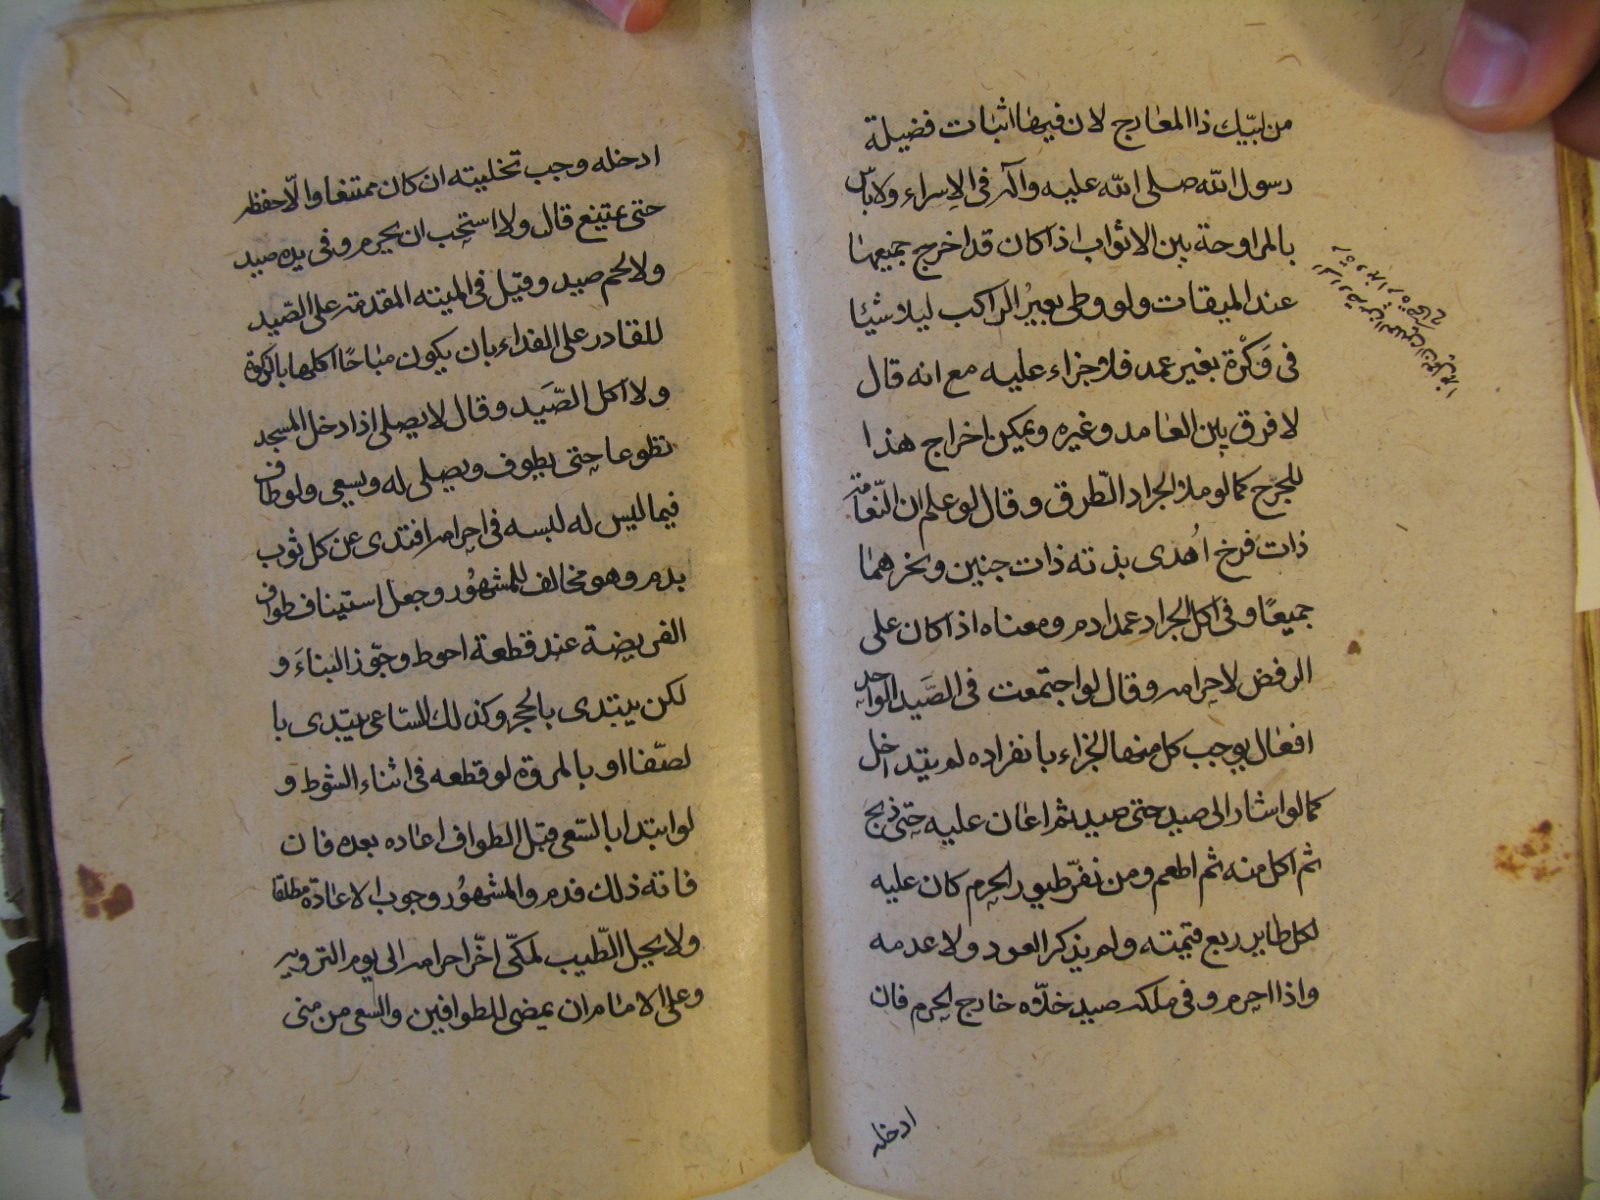 من لبيك ذا المعارج لان فيها اثبات فضيلة
رسول الله صلى الله عليه وآله فى الاسراء ولا بأس
بالمراوحة بين الاثواب اذا كان قد اخرج جميعها
عند الميقات ولو وطى بعيرُ الراكب ليلا شيئا
فى وَكْرة بغير عمد فلا جزاء عليه مع انه قال
لا فرق بين العامد وغيره ويمكن اخراج هذا
للجرح كما لو ملأ الجراد الطّرق وقال لو علم ان النّعامة
ذات فرخ اُهدى بدنه ذات جنين ونحرهما
جميعًا وفى اكل الجراد عمدا دم ومعناه اذا كان على
الرفض لاحرامه وقال لو اجتمعت فى الصَيد الواحد
افعال يوجب كل منها الجزاء بانفراده لم يتداخل
كما لو اشار الى صيد حتى صيد ثم اعان عليه حتى ذبح
ثم اكل منه ثم اطعم ومن نفّر طيور الحرم كان عليه
لكل طاير ربع قيمته ولم يذكر العود ولا عدمه
واذا احرم وفى ملكه صيد خلّاه خارج الحرم فان
ادخله
ادخله وجب تخليته ان كان ممتنعا والّا حفظه
حتى يمتنع قال ولا استحب ان يحرم وفى يده صيد
ولا لحم صيد وقيل فى الميته المقدمة على الصّيد
للقادر على الفداء بان يكون مباحًا اكلها بالذكوة
ولا اكل الصّيَد وقال لا يصلى اذا دخل المسجد
تطوعا حتى يطوف ويصلى له ويسعى ولو طاف
فيما ليس له لبسه فى احرامه افتدى عن كل ثوب
بدم وهو مخالف للمشهُور وجعل استيناف طواف
الفريضة عند قطعة احوط وجوّز البناءَ و
لكن يبتدى بالحجر وكذلك الساعى يبتدى با
لصّفا او بالمروة لو قطعه فى اثناء الشوط و
لو ابتدا بالسّعى قبل الطواف اعاده بعده فان
فاته ذلك فدم والمشهُور وجوب الاعادة مطلقا
ولا يحل الطّيب لمكّى اخّر احرامه الى يوم التروية
وعلى الامام ان يمضى للطوافين والسعى من منى